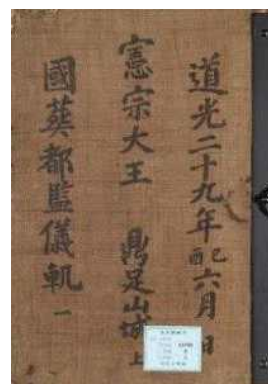 道光二十九年己酉六月 日
憲宗大王 鼎足山城上
國葬都監儀軌 一